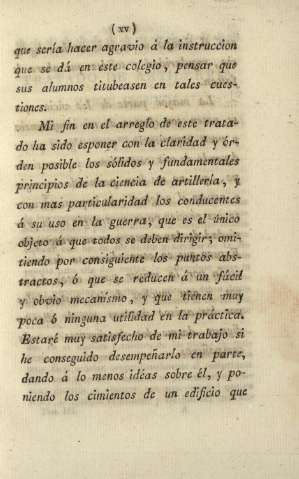 (xv)
que sería hacer agravio á la instruccion
que se dá en este colegio, pensar que
sus alumnos titubeasen en tales cues-
tiones.
Mi fin en el arreglo de este trata-
do ha sido esponer con la claridad y ór-
den posible los sólidos y fundamentales
principios de la ciencia de artillería, y
con mas particularidad los conducentes
á su uso en la guerra, que es el único
objeto á que todos se deben dirigir; omi-
tiendo por consiguiente los puntos abs-
tractos, ó que se reducen á un fácil
y obvio mecanismo, y que tienen muy
poca ó ninguna utilidad en la práctica.
Estaré muy satisfecho de mi trabajo si
he conseguido desempeñarlo en parte,
dando á lo menos idéas sobre él, y po-
niendo los cimientos de un edificio que